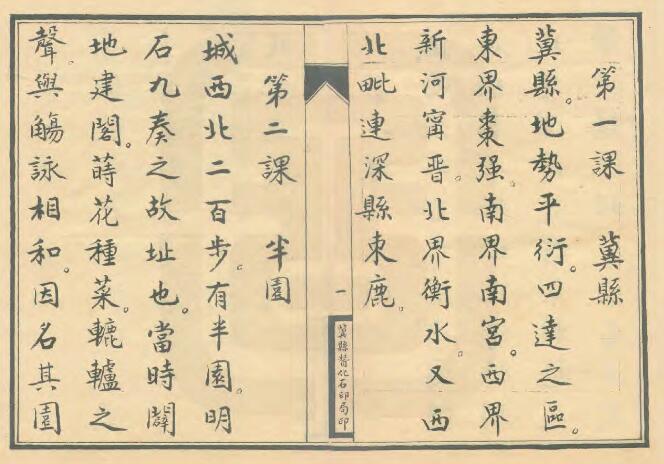 第一課 冀縣
冀縣。地勢平衍。四達之區。
東界棗强。南界南宮。西界
新河甯晉。北界衡水。又西
北毗連深縣束鹿。
一
冀縣督化石印局印
第二課 半園
城西北二百步。有半園。明
石九奏之故址也。當時闢
地建閣。蒔花種菜。轆轤之
聲。與觴詠相和。因名其園